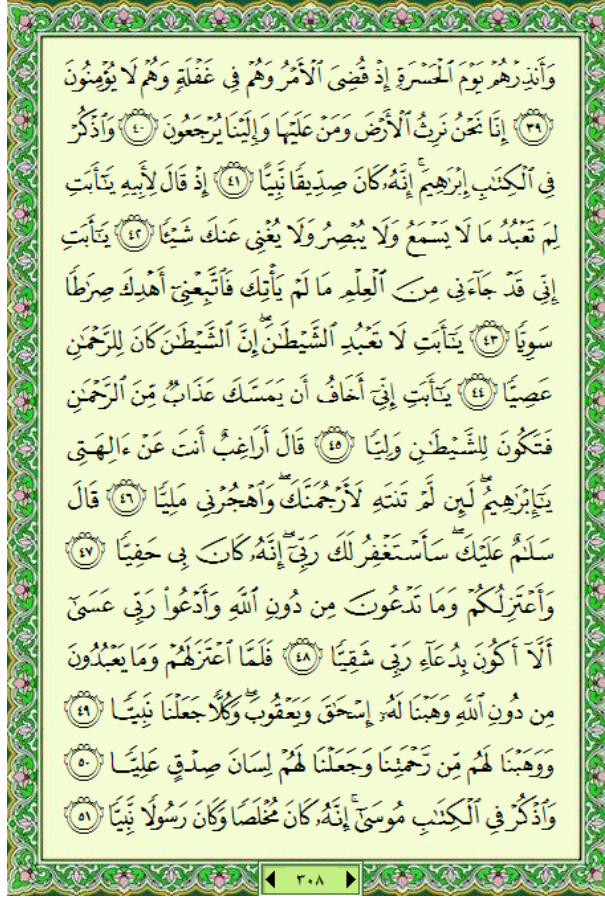 وَأَنذِرْهُمْ يَوْمَ ٱلْحَسْرَةِ إِذْ قُضِىَ ٱلْأَمْرُ وَهُمْ فِى غَفْلَةٍ وَهُمْ لَا يُؤْمِنُونَ
﴿٣٩﴾ إِنَّا نَحْنُ نَرِثُ ٱلْأَرْضَ وَمَنْ عَلَيْهَا وَإِلَيْنَا يُرْجَعُونَ ﴿٤٠﴾ وَٱذْكُرْ
فِى ٱلْكِتَٰبِ إِبْرَٰهِيمَ ۚ إِنَّهُۥ كَانَ صِدِّيقًا نَّبِيًّا ﴿٤١﴾ إِذْ قَالَ لِأَبِيهِ يَٰٓأَبَتِ
لِمَ تَعْبُدُ مَا لَا يَسْمَعُ وَلَا يُبْصِرُ وَلَا يُغْنِى عَنكَ شَيْـًٔا ﴿٤٢﴾ يَٰٓأَبَتِ
إِنِّى قَدْ جَآءَنِى مِنَ ٱلْعِلْمِ مَا لَمْ يَأْتِكَ فَٱتَّبِعْنِىٓ أَهْدِكَ صِرَٰطًا
سَوِيًّا ﴿٤٣﴾ يَٰٓأَبَتِ لَا تَعْبُدِ ٱلشَّيْطَٰنَ ۖ إِنَّ ٱلشَّيْطَٰنَ كَانَ لِلرَّحْمَٰنِ
عَصِيًّا ﴿٤٤﴾ يَٰٓأَبَتِ إِنِّىٓ أَخَافُ أَن يَمَسَّكَ عَذَابٌ مِّنَ ٱلرَّحْمَٰنِ
فَتَكُونَ لِلشَّيْطَٰنِ وَلِيًّا ﴿٤٥﴾ قَالَ أَرَاغِبٌ أَنتَ عَنْ ءَالِهَتِى
يَٰٓإِبْرَٰهِيمُ ۖ لَئِن لَّمْ تَنتَهِ لَأَرْجُمَنَّكَ ۖ وَٱهْجُرْنِى مَلِيًّا ﴿٤٦﴾ قَالَ
سَلَٰمٌ عَلَيْكَ ۖ سَأَسْتَغْفِرُ لَكَ رَبِّىٓ ۖ إِنَّهُۥ كَانَ بِى حَفِيًّا ﴿٤٧﴾
وَأَعْتَزِلُكُمْ وَمَا تَدْعُونَ مِن دُونِ ٱللَّهِ وَأَدْعُوا۟ رَبِّى عَسَىٰٓ
أَلَّآ أَكُونَ بِدُعَآءِ رَبِّى شَقِيًّا ﴿٤٨﴾ فَلَمَّا ٱعْتَزَلَهُمْ وَمَا يَعْبُدُونَ
مِن دُونِ ٱللَّهِ وَهَبْنَا لَهُۥٓ إِسْحَٰقَ وَيَعْقُوبَ ۖ وَكُلًّا جَعَلْنَا نَبِيًّا ﴿٤٩﴾
وَوَهَبْنَا لَهُم مِّن رَّحْمَتِنَا وَجَعَلْنَا لَهُمْ لِسَانَ صِدْقٍ عَلِيًّا ﴿٥٠﴾
وَٱذْكُرْ فِى ٱلْكِتَٰبِ مُوسَىٰٓ ۚ إِنَّهُۥ كَانَ مُخْلَصًا وَكَانَ رَسُولًا نَّبِيًّا ﴿٥١﴾
٣٠٨